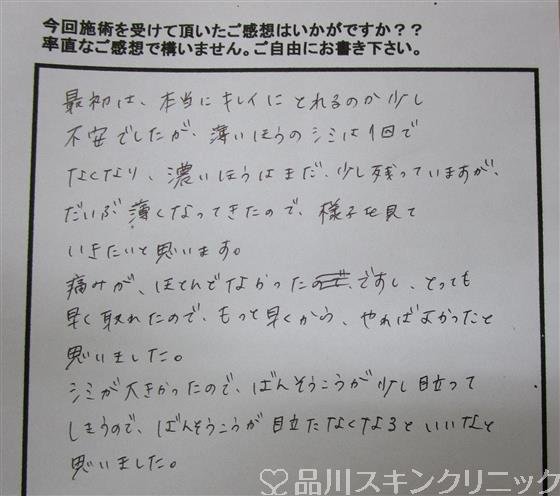 今回施術を受けて頂いたご感想はいかがですか？？
率直なご感想で構いません。ご自由にお書き下さい。
最初は、本当にキレイにとれるのか少し
不安でしたが、薄いほうのシミは1回で
なくなり、濃いほうはまだ、少し残っていますが、
だいぶ薄くなってきたので、様子を見て
いきたいと思います。
痛みが、ほとんどなかったですし、とっても
早く取れたので、もっと早くから、やればよかったと
思いました。
シミが大きかったので、ばんそうこうが少し目立って
しまうので、ばんそうこうが目立たなくなるといいなと
思いました。
品川スキンクリニック